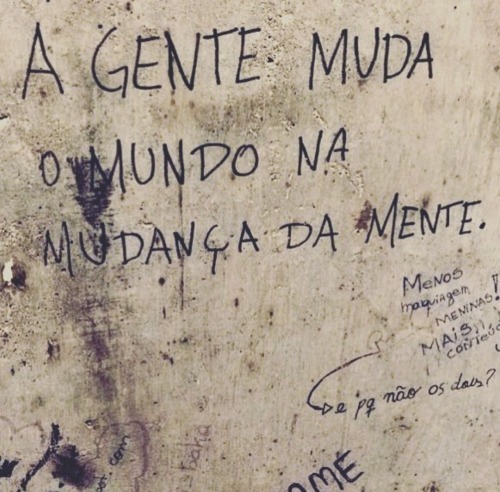 A GENTE MUDA
O MUNDO NA
MUDANÇA DA MENTE.
MENOS
maquiagem
MENINAS!
MAIS
e pq não os dois?